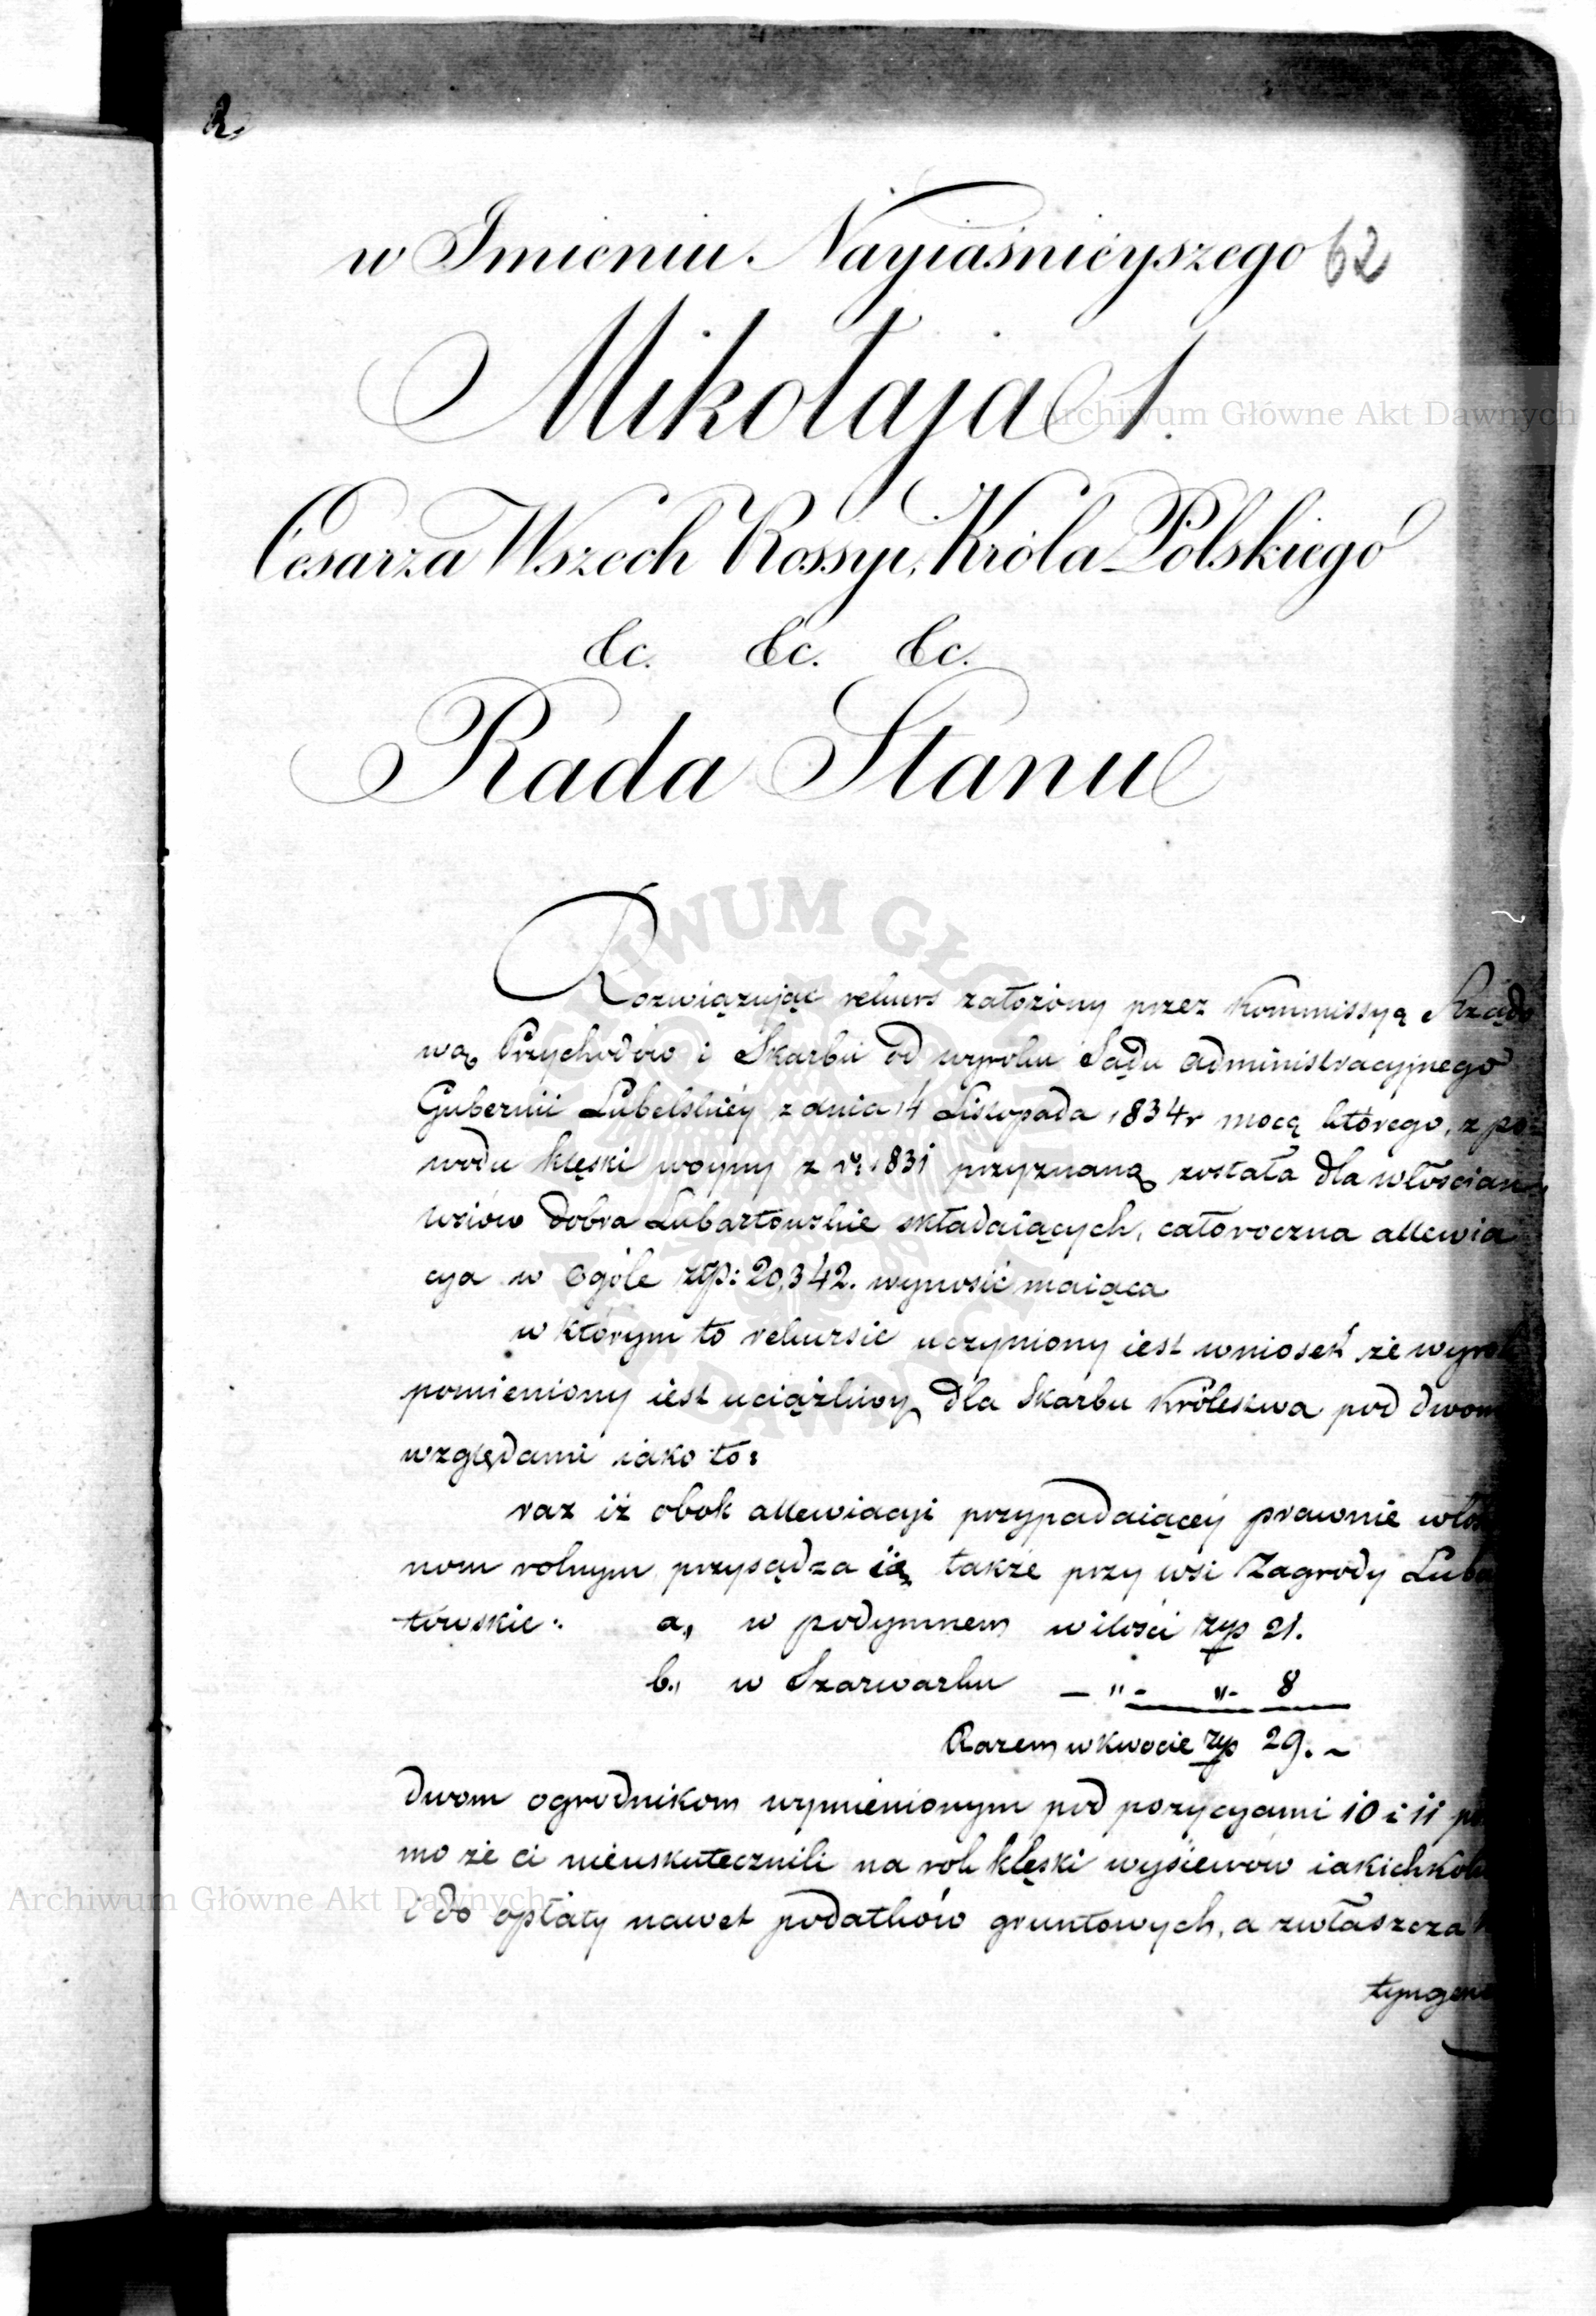 2.
w Imieniu Nayiaśnieyszego 62
Mikołaja I.
Cesarza Wszech Rossyi, Króla Polskiego
&c. &c. &c.
Rada Stanu
Rozwiązując rekurs założony przez Kommissyą Rządo
wą Przychodów i Skarbu od wyroku Sądu Administracyjnego
Gubernii Lubelskiéy z dnia 14 Listopada 1834 r mocą którego, z po=
wodu klęski woyny z r: 1831 przyznaną została dla włościan
wsiów dobra Lubartowskie składaiących, całoroczna allewia
cya w ogóle złp: 20,342. wynosić maiąca
w którym to rekursie uczyniony iest wniosek że wyrok
pomieniony iest uciążliwy dla Skarbu Królestwa pod dwom
względami iako to:
raz iż obok allewiacyi przypadaiącéy prawnie
nom rolnym przysądza ią także przy wsi Zagrody
towskie: a, w podymnem w ilości złp 21.
b., w Szarwarku — "- "- 8
Razem w kwocie złp 29. ~
dwom ogrodnikom wymienionym pod pozycyami 10 i 11
mo że ci nieuskutecznili na rok klęski wysiewów
i do opłaty nawet podatków gruntowych, a zwłaszcza
Archiwum Główne Akt Dawnych
Archiwum Główne Akt Dawnych
ARCHIWUM GŁÓWNE AKT DAWNYCH